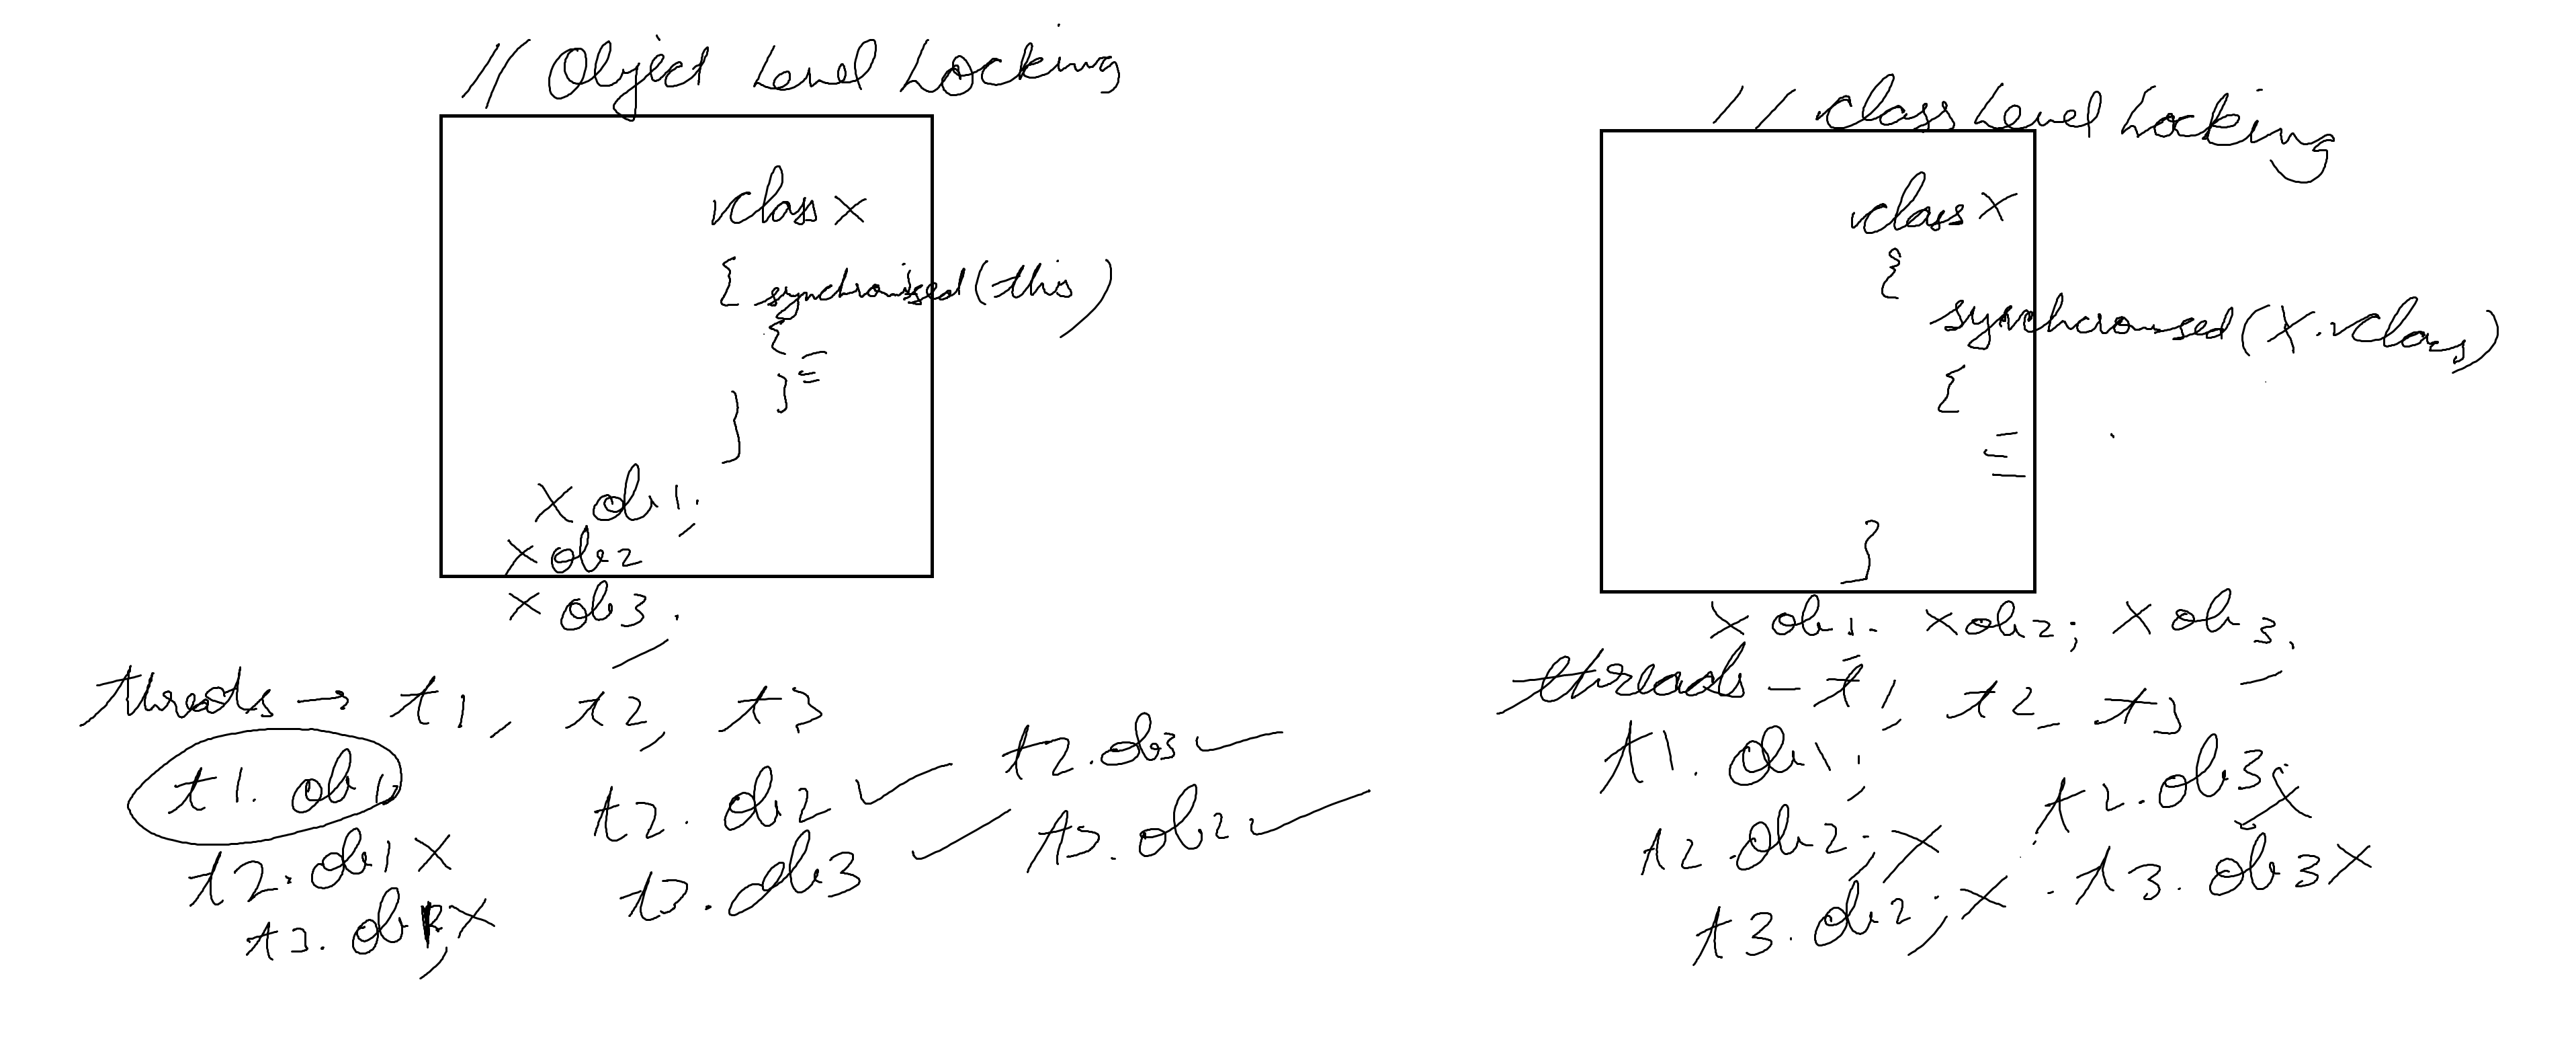 // Object Level Locking
class X
{ synchronised(this)
{
}
}
X ob1;
X ob2
X ob3.
threads → t1, t2, t3
t1.ob1
t2.ob2 ✓ t2.ob3 ✓
t2.ob1 X
t3.ob3 ✓ t3.ob2 ✓
t3.ob1, X
// class Level Locking
class X
{
synchronised(X.class)
{
}
X ob1. X ob2; X ob3.
threads - t1, t2, t3
t1.ob1;
t2.ob2; X t2.ob3; X
t3.ob2; X t3.ob3 X